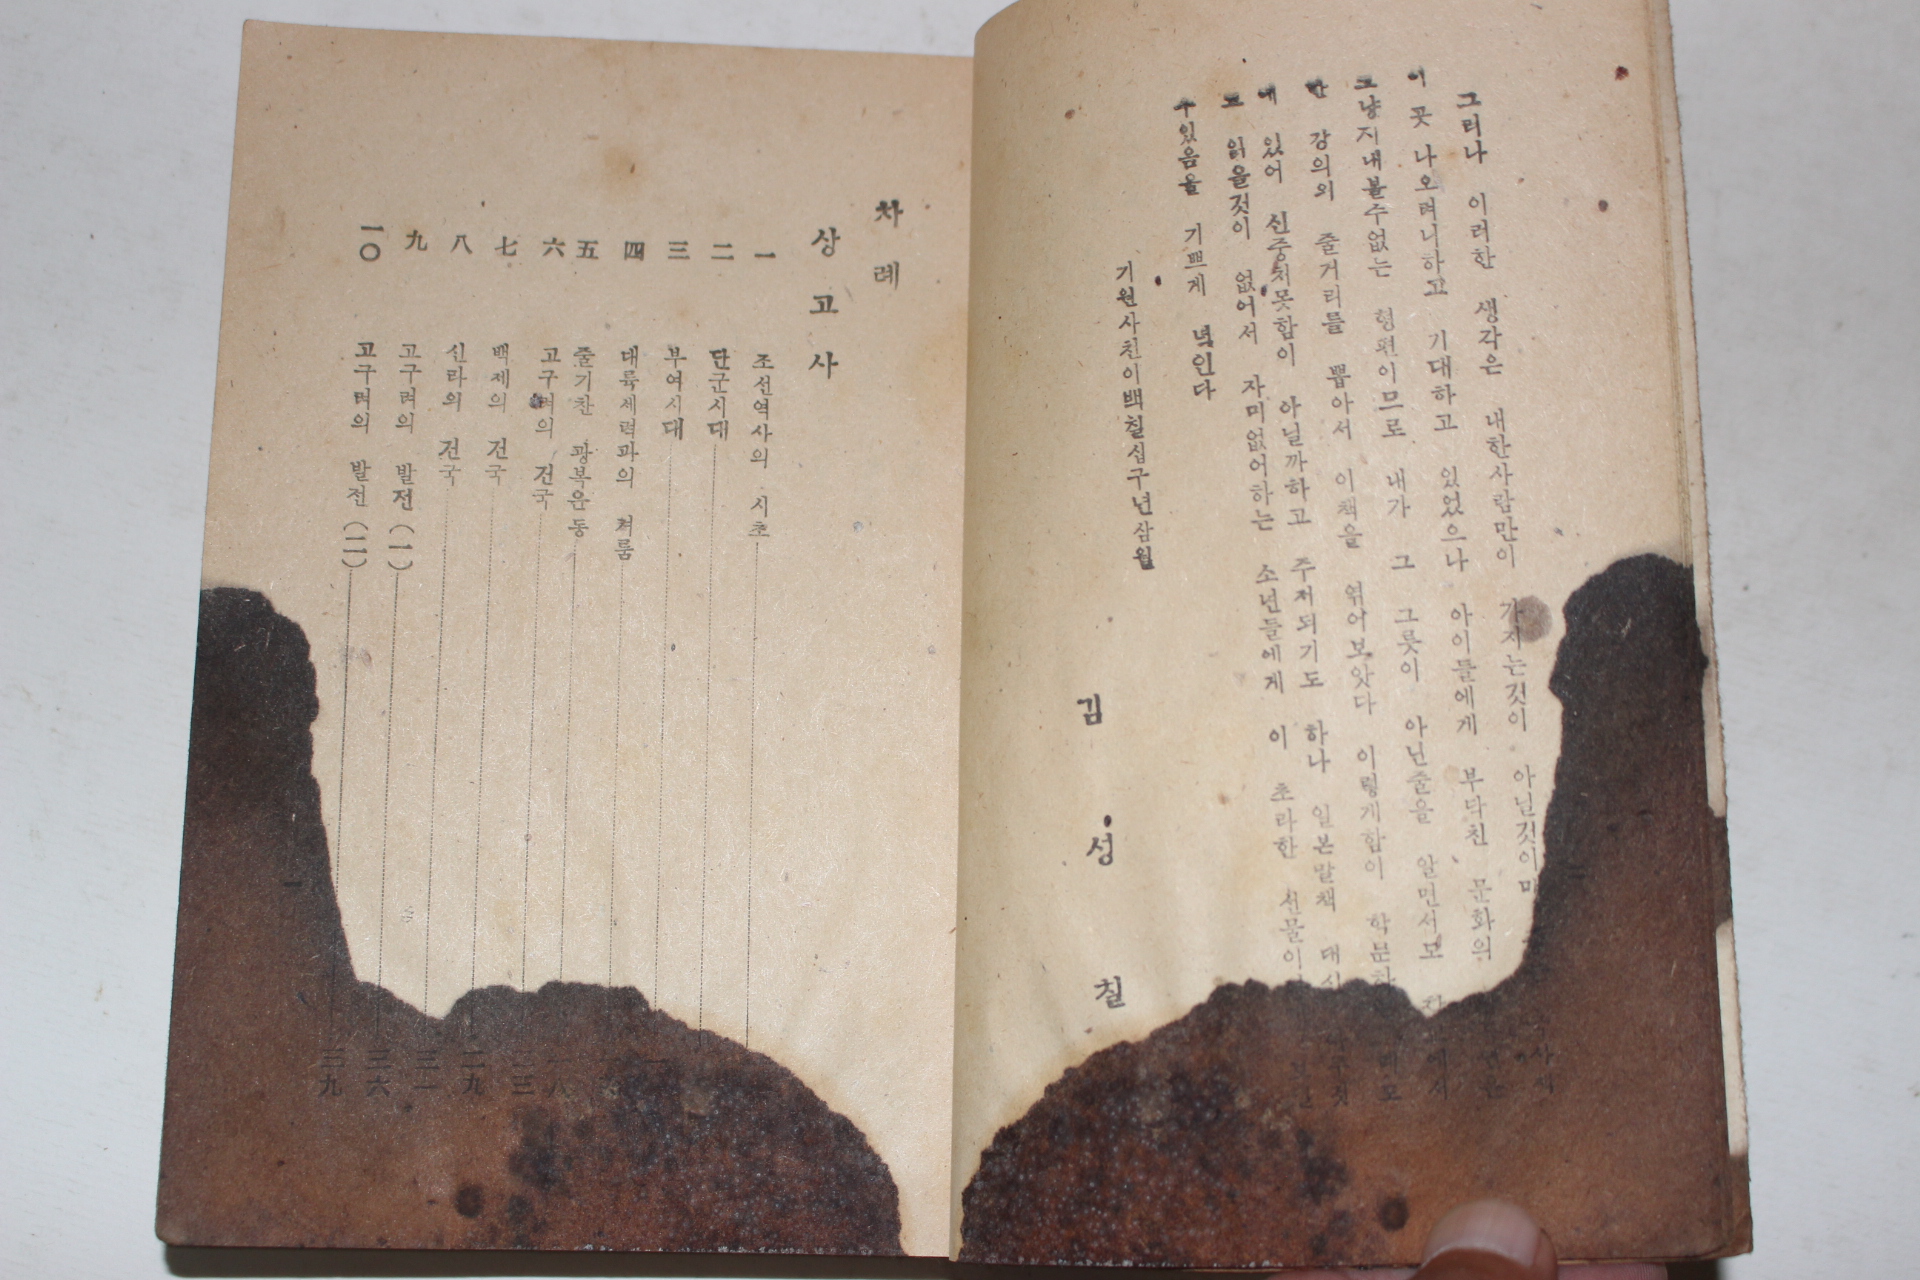 그러나 이러한 생각은 내한사람만이 가지는것이 아닌것이며 사회
이 곳 나오려니하고 기대하고 있었으나 아이들에게 부닥친 문화의
그냥지내볼수없는 형편이므로 내가 그 그릇이 아닌줄을 알면서도
한 강의의 줄거리를 뽑아서 이책을 엮어보았다 이렇게함이 학문하
에 있어 신중치못함이 아닐까하고 주저되기도 하나 일본말책 대신
고 읽을것이 없어서 자미없어하는 소년들에게 이 초라한 선물이
수있음을 기쁘게 녁인다
기원사천이백칠십구년삼월
김성칠
차례
상고사
一 조선역사의 시초
二 단군시대
三 부여시대
四 대륙세력과의 겨룸
五 줄기찬 광복운동
六 고구려의 건국 二三
七 백제의 건국 二九
八 신라의 건국 三一
九 고구려의 발전(一) 三六
一〇 고구려의 발전(二) 三九
一